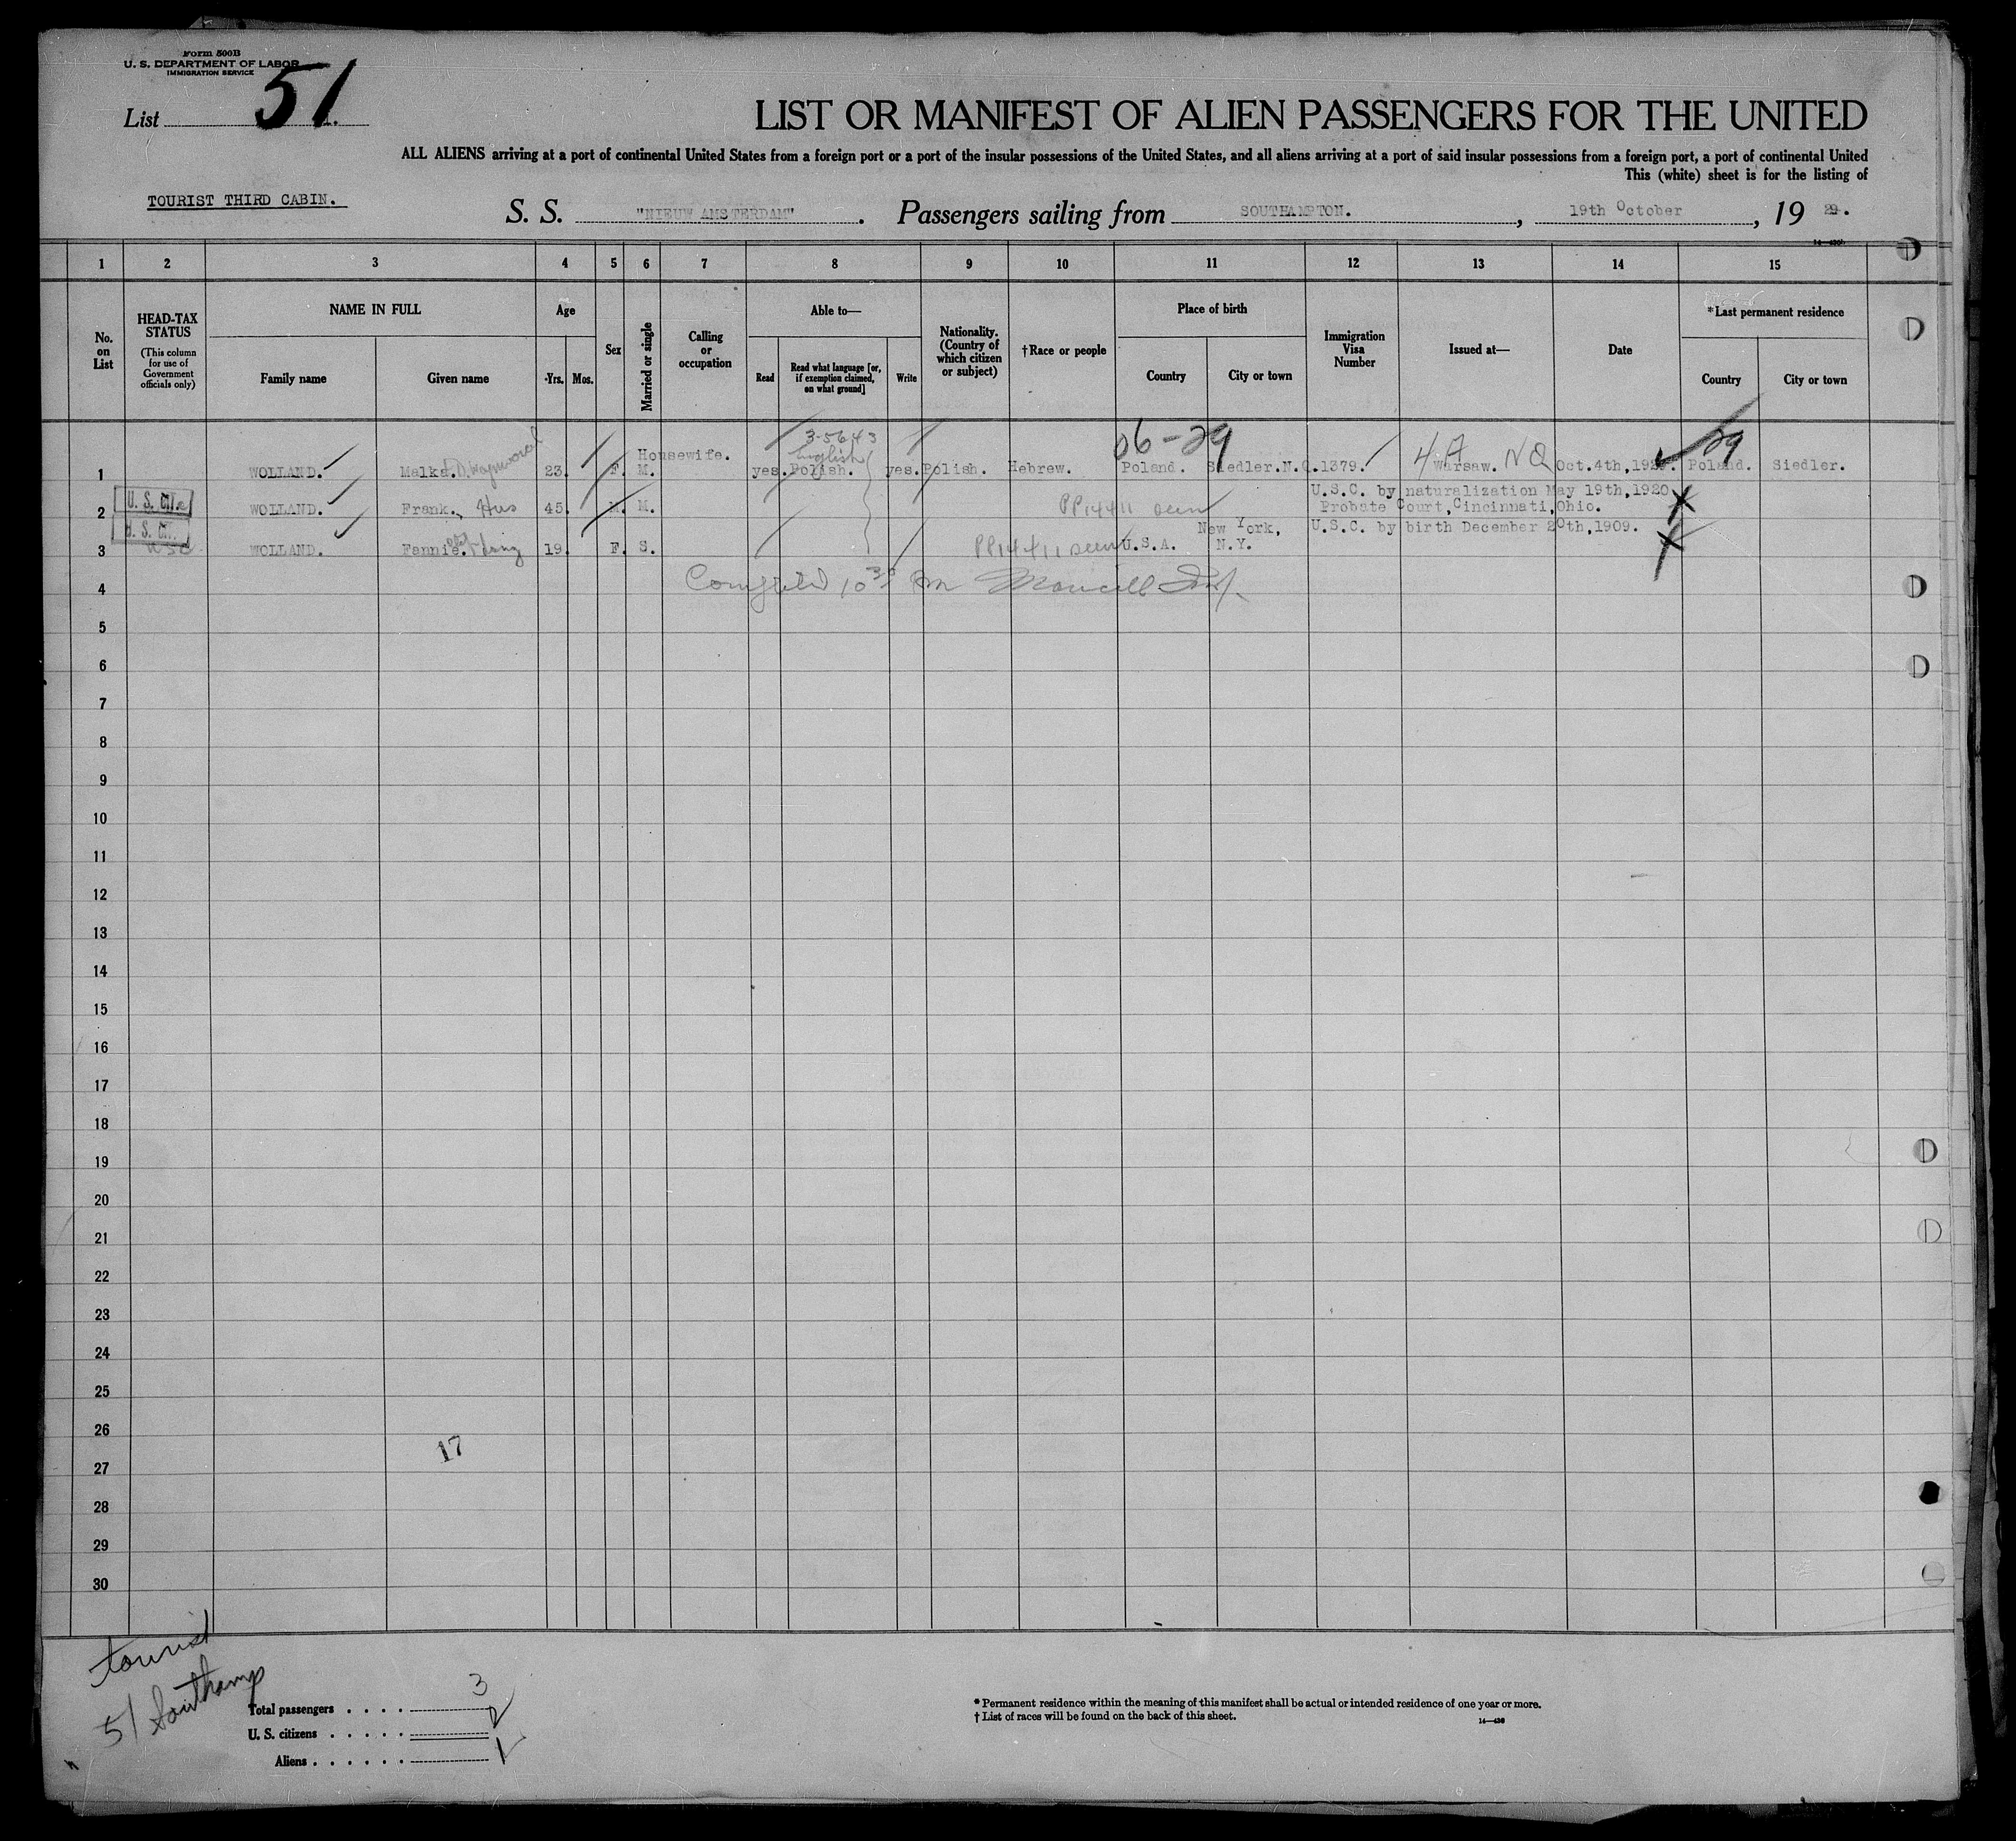 Form 500B
U. S. DEPARTMENT OF LABOR
IMMIGRATION SERVICE
List 51.
LIST OR MANIFEST OF ALIEN PASSENGERS FOR THE UNITED
ALL ALIENS arriving at a port of continental United States from a foreign port or a port of the insular possessions of the United States, and all aliens arriving at a port of said insular possessions from a foreign port, a port of continental United
This (white) sheet is for the listing of
TOURIST THIRD CABIN.
S. S. "NIEUW AMSTERDAM". Passengers sailing from SOUTHAMPTON., 19th October, 19 29.
1 2 3 4 5 6 7 8 9 10 11 12 13 14 15
No. on List
HEAD-TAX STATUS
(This column for use of Government officials only)
NAME IN FULL
Family name
Given name
Age
Yrs. Mos.
Sex
Married or single
Calling or occupation
Able to—
Read
Read what language [or, if exemption claimed, on what ground]
Write
Nationality. (Country of which citizen or subject)
†Race or people
Place of birth
Country
City or town
Immigration Visa Number
Issued at—
Date
*Last permanent residence
Country
City or town
3-5643
06-29
29
English
Housewife.
1 WOLLAND. Malka. 23. F. M. yes. Polish. yes. Polish. Hebrew. Poland. Siedler. N.Q.1379. 4 A Warsaw. NQ Oct.4th,1929. Poland. Siedler.
U.S.C. by naturalization May 19th,1920
2 U. S. Cit. WOLLAND. Frank. Hus 45. M. M. PP14411 seen Probate Court,Cincinnati,Ohio.
New York, U.S.C. by birth December 20th,1909.
3 U. S. Cit. USC WOLLAND. Fannie. 19. F. S. PP14411 seen U.S.A. N.Y.
4
5
6
7
8
9
10
11
12
13
14
15
16
17
18
19
20
21
22
23
24
25
26
17
27
28
29
30
tourist
51 Southamp
Total passengers . . . . 3
U. S. citizens . . . . . 2
Aliens . . . . . . 1
* Permanent residence within the meaning of this manifest shall be actual or intended residence of one year or more.
† List of races will be found on the back of this sheet.